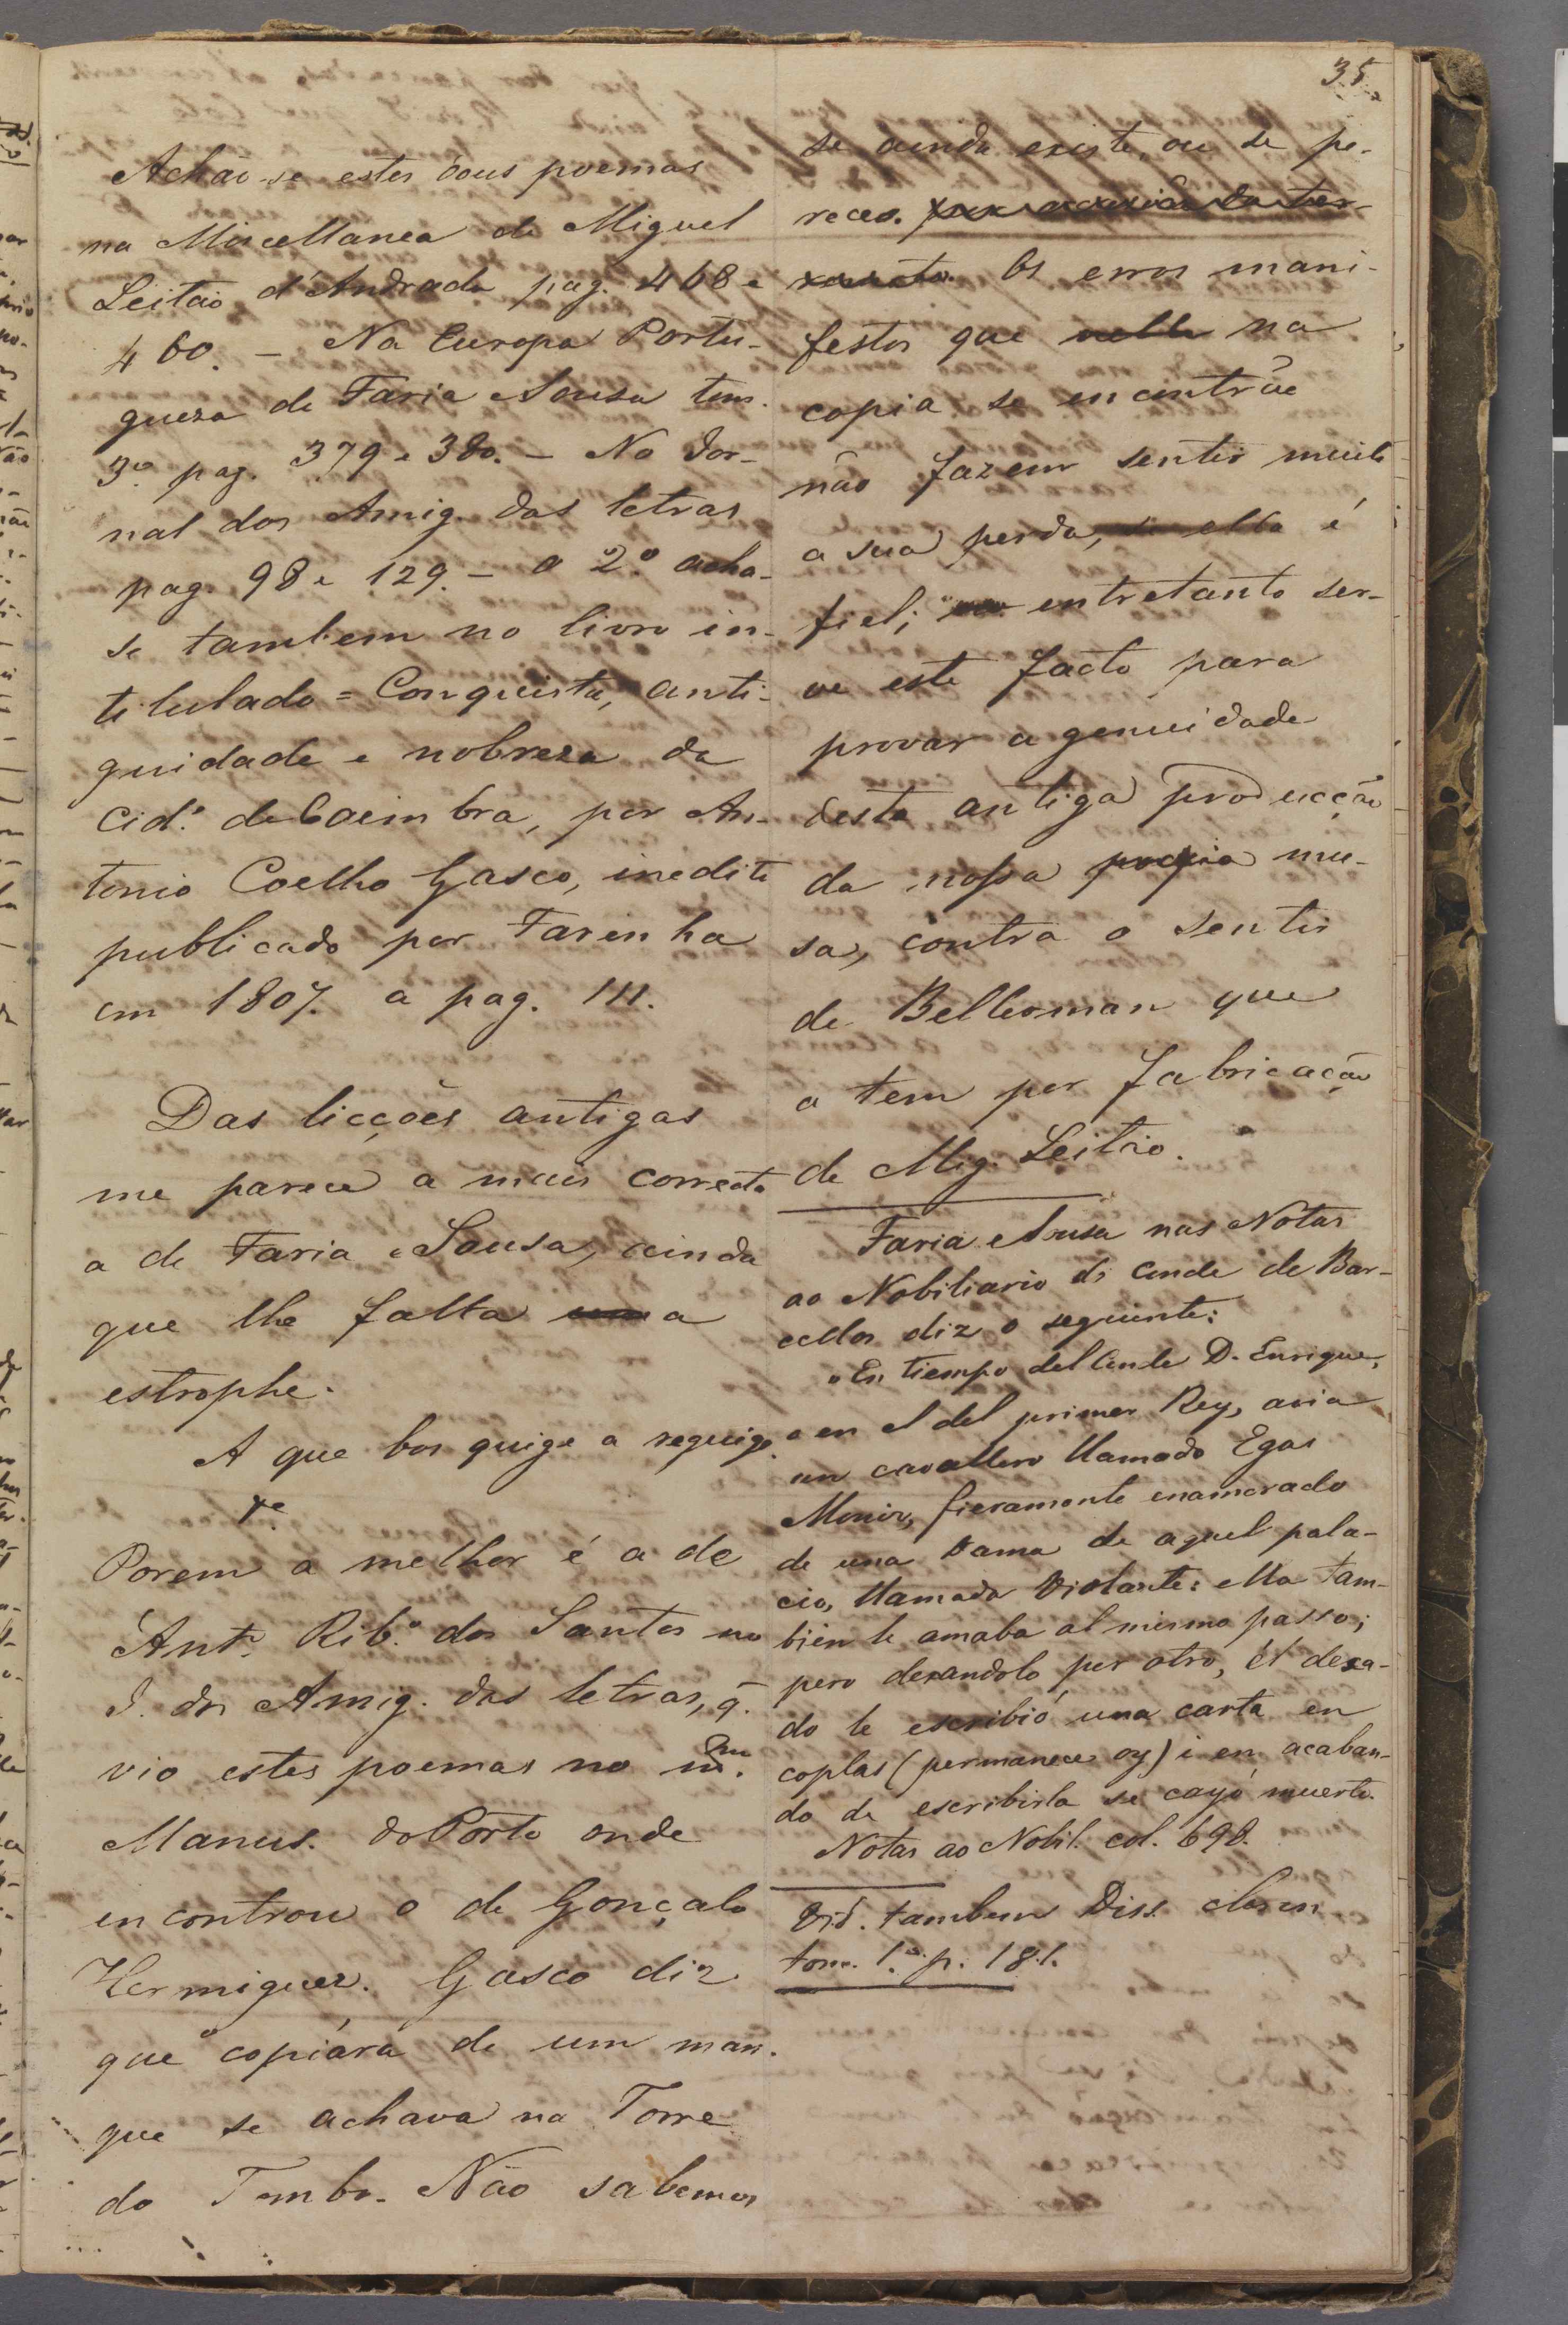 35
Achão-se estes dous poemas
na Miscellanea de Miguel
Leitão d'Andrada pag. 468 e
460. – Na Europa Portu-
gueza de Faria e Sousa tom.
3º pag. 379 e 380. – No Jor-
nal dos Amig. das letras
pag. 98 e 129. – O 2º acha-
se tambem no livro in-
titulado = Conquista, anti-
guidade e nobreza da
Cid.e de Coimbra, por An-
tonio Coelho Gasco, inedito
publicado por Farinha
em 1807. a pag. 111.
Das licções antigas
me parece a mais correcta
a de Faria e Sousa, ainda
que lhe falta uma
estrophe.
A que bos quige a reguige
&c.
Porem a melhor é a de
Ant.º Rib.º dos Santos no
J. dos Amig. das letras, q.
vio estes poemas no
Manus. do Porto onde
encontrou o de Gonçalo
Hermiguez. Gasco diz
que copiára de um man.
que se achava na Torre
do Tombo. Não sabemos
se ainda existe, ou se pe-
receo.
Os erros mani-
festos que nella na
copia se encontrão
não fazem sentir muito
a sua perda, se ella é
fiel; entretanto ser-
ve este facto para
provar a genuidade
desta antiga producção
da nossa propia mu-
sa, contra o sentir
de Bellerman que
a tem por fabricação
de Mig. Leitão.
Faria e Sousa nas Notas
ao Nobiliario do Conde de Bar-
cellos diz o seguinte:
"En tiempo del Conde D. Enrique,
e en el del primer Rey, avia
un cavallero llamado Egas
Moniz, fieramente enamorado
de una Dama de aquel pala-
cio, llamada Violante: ella tam-
bien le amaba al mismo passo;
pero dexandolo por otro, él dexa-
do le escribió una carta en
coplas (permanece oy) i en acaban-
do de escribirla se cayó muerto.
Notas ao Nobil. col. 698.
Vid. tambem Diss. chron
tom. 1.º p. 181.